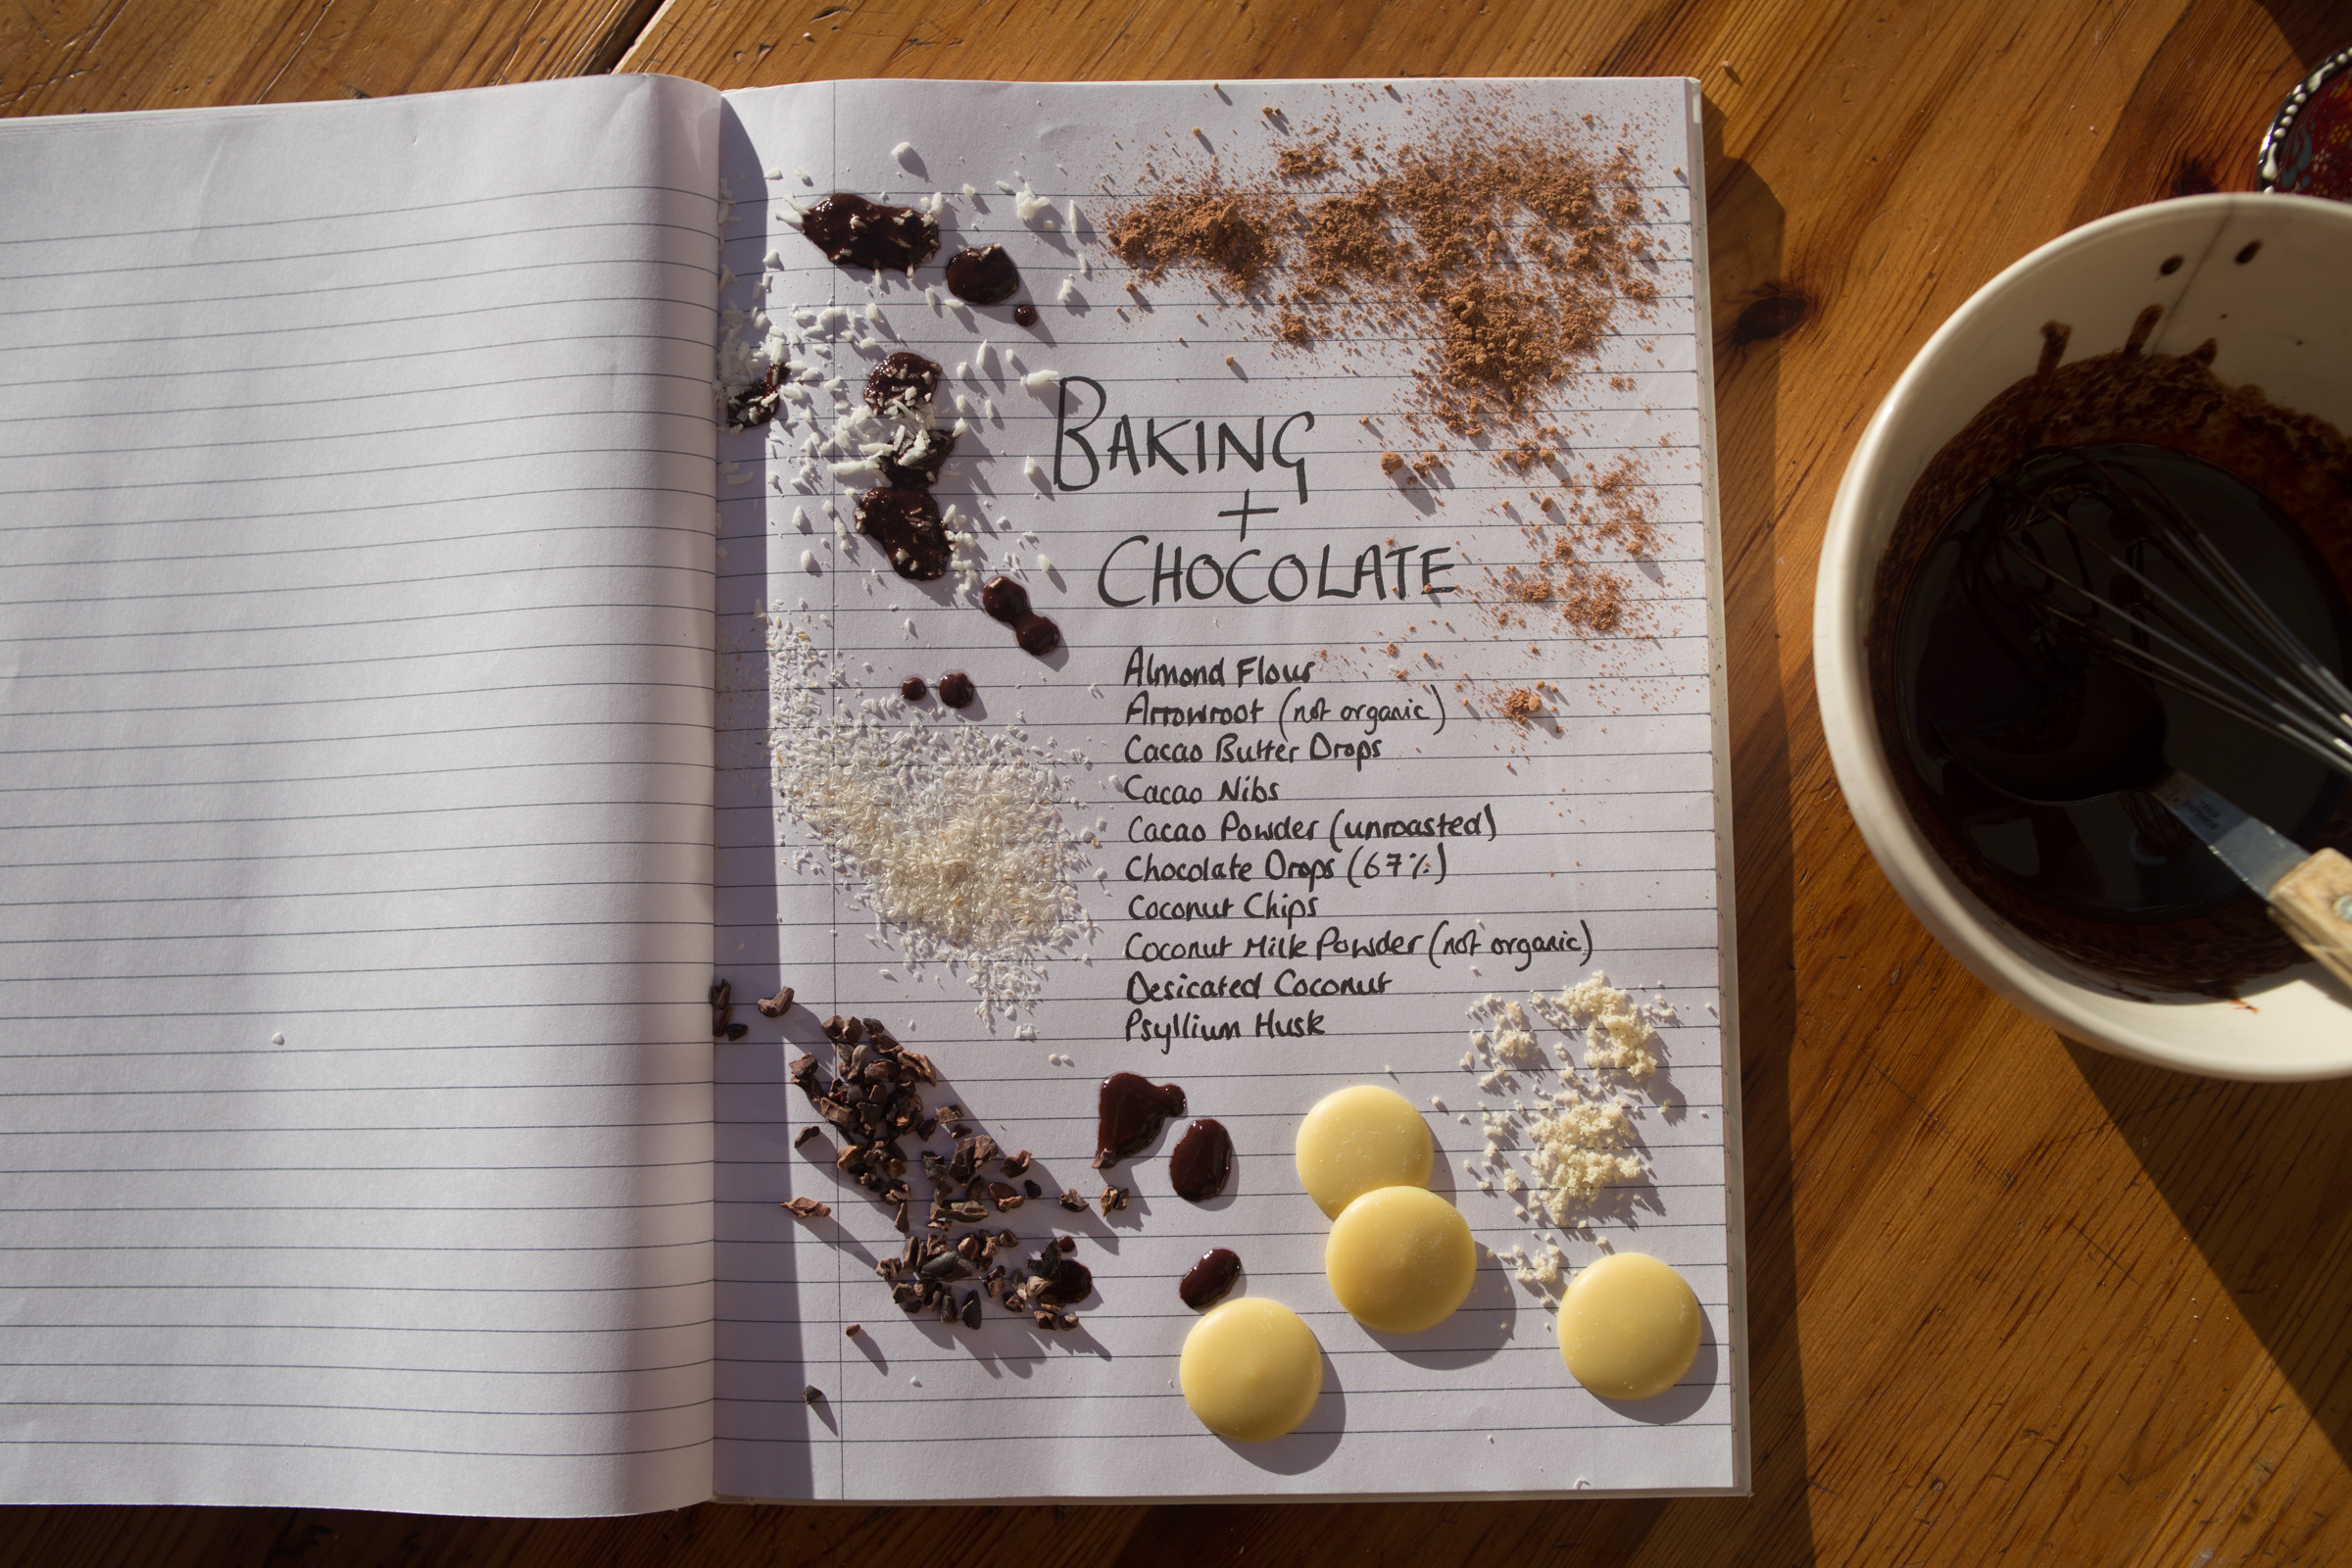 BAKING
+
CHOCOLATE
Almond Flour
Arrowroot (not organic)
Cacao Butter Drops
Cacao Nibs
Cacao Powder (unroasted)
Chocolate Drops (67%)
Coconut Chips
Coconut Milk Powder (not organic)
Desicated Coconut
Psyllium Husk